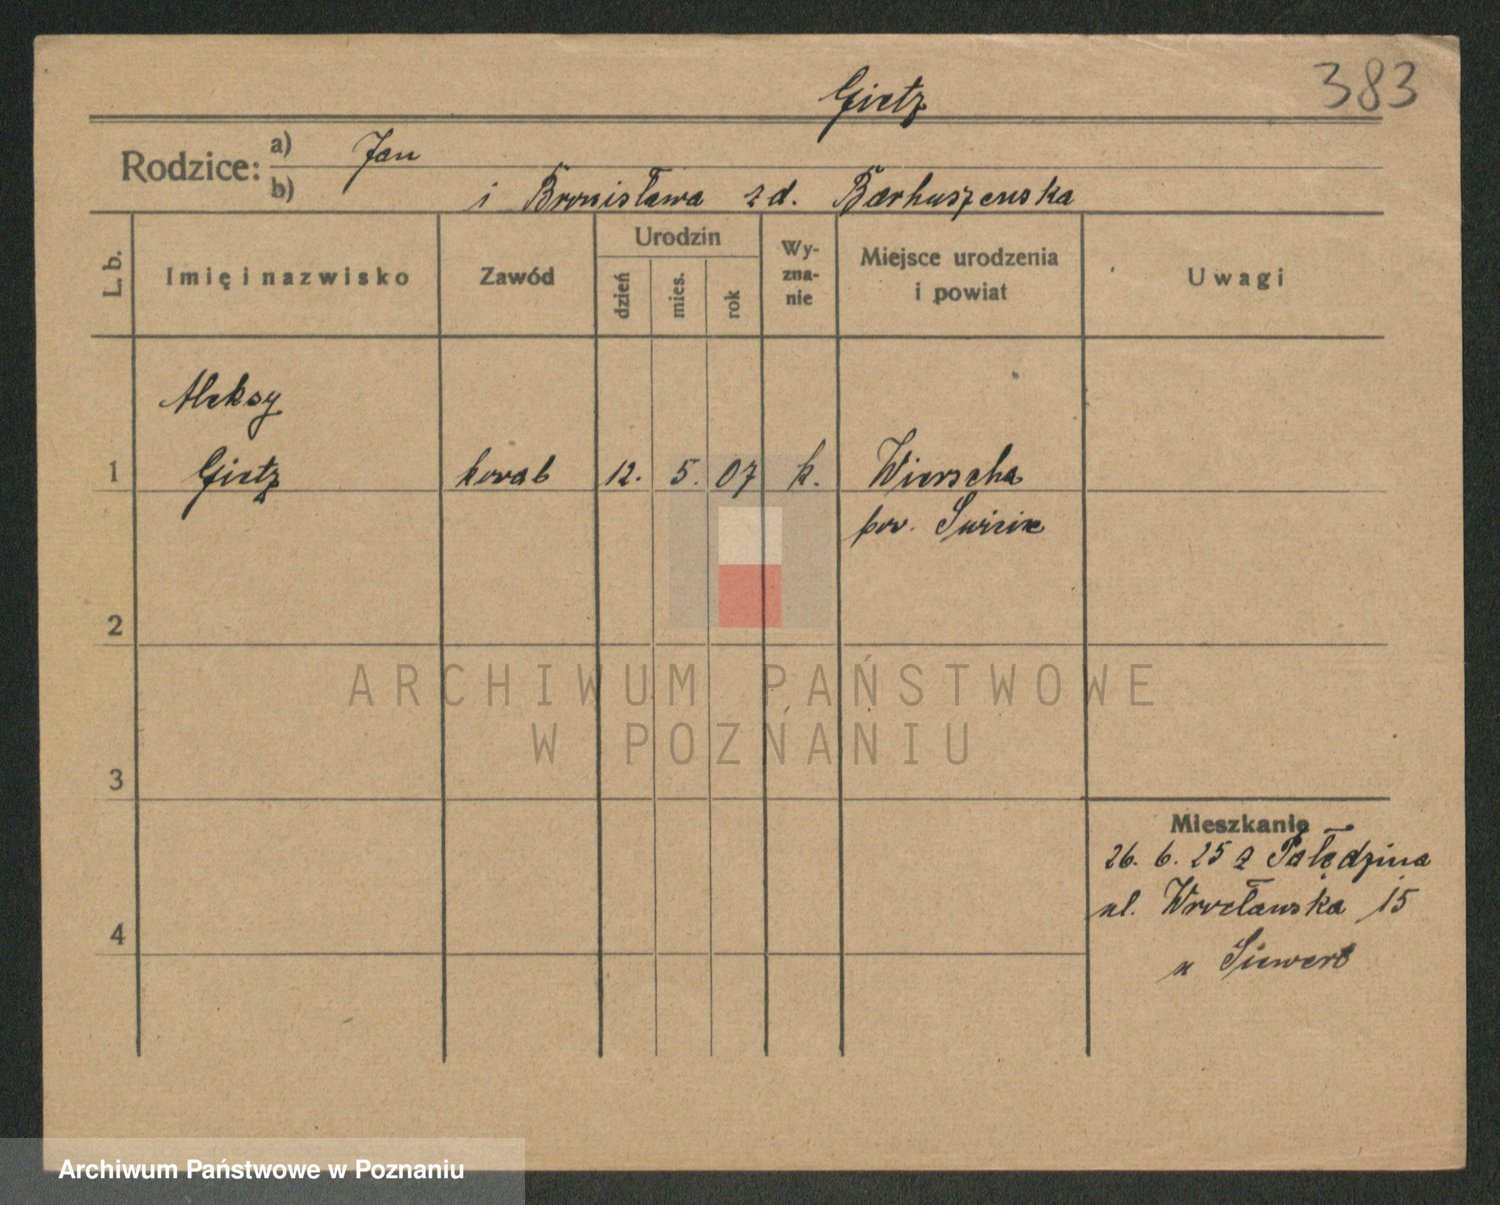 383
Gietz
Rodzice: a) Jan
b) i Bronisława z d. Barkuszewska
L. b. Imię i nazwisko Zawód Urodzin dzień mies. rok Wy-zna-nie Miejsce urodzenia i powiat Uwagi
Aleksy
1 Gietz 12. 5. 07 k.
pow.
2
3
4
Mieszkanie
26. 6. 25 z Palędzina
ul. Wrocławska 15
u Siewert
ARCHIWUM PAŃSTWOWE
W POZNANIU
Archiwum Państwowe w Poznaniu